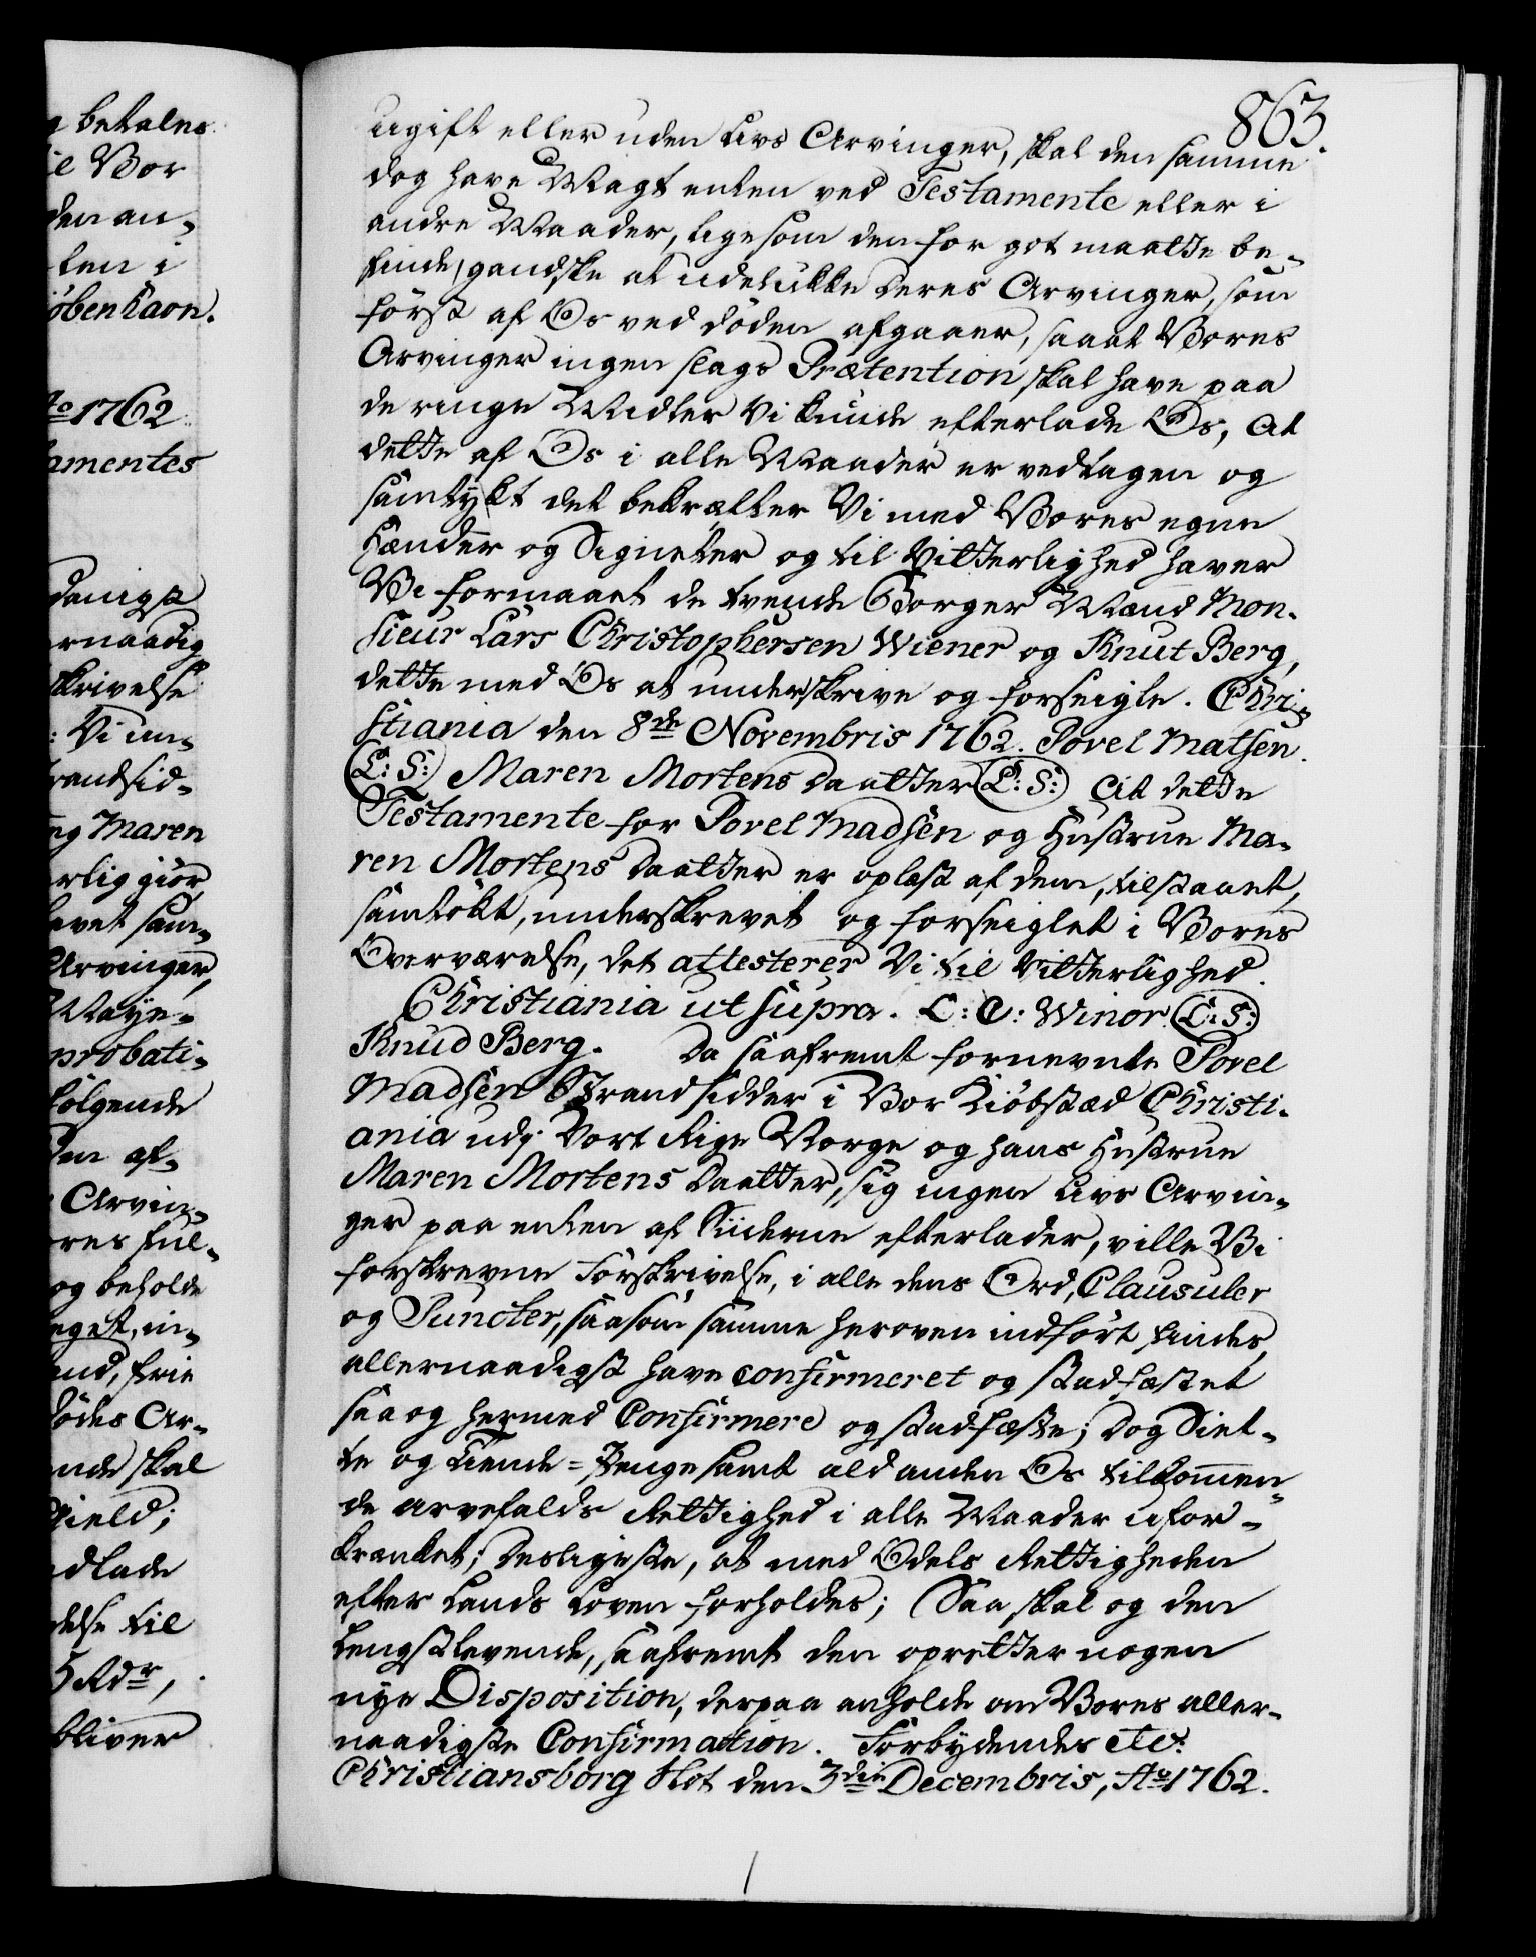 863.
ugift eller uden Livs Arvinger, skal den samme
dog have Magt enten ved Testamente eller i
andre Maader, ligesom den for got maatte be-
finde, gandske at udelukke deres Arvinger, som
først af Os ved døden afgaaer, saa at Vores
Arvinger ingen slags Prætention skal have paa
de ringe Midler Vi kunde efterlade Os, At
dette af Os i alle Maader er vedtagen og
samtykt det bekræfter Vi med Vores egne
Hænder og Signeter og til Vitterlighed haver
Vi formaaet de tvende Borger Mænd Mon-
sieur Lars Christophersen Wiener og Knut Berg,
dette med Os at underskrive og forseigle. Chri-
stiania den 8de Novembris 1762. Povel Matsen.
(L: S:) Maren Mortens Daatter (L: S:) At dette
Testamente for Povel Madsen og Hustrue Ma-
ren Mortens Daatter er oplæst af dem, tilstaaet,
samtøkt, underskrevet og forseiglet i Vores
Overværelse, det attesterer Vi til Vitterlighed.
Christiania ut supra. L: C: Winor (L: S:)
Knud Berg. Da saafremt fornevnte Povel
Madsen Strandsidder i Vor Kiøbstæd Christi-
ania udj Vort Rige Norge og hans Hustrue
Maren Mortens Daatter, sig ingen Livs Arvin-
ger paa enten af Siiderne efterlader, ville Vi
forskrevne Forskrivelse, i alle dens Ord, Clausuler
og Puncter, saasom samme heroven indført findes,
allernaadigst have confirmeret og stadfæstet
saa og hermed Confirmere og stadfæste; Dog Siet-
te og Tiende-Penge samt ald anden Os tilkommen-
de Arvefalds Rettighed i alle Maader ufor-
krænket; Desligeste, at med Odels Rettigheden
efter Lands Loven forholdes; Saa skal og den
Lengstlevende, saafremt den opretter nogen
nye Disposition, derpaa anholde om Vores aller-
naadigste Confirmation. Forbydendes etc.
Christiansborg Slot den 3die Decembris, Ao 1762.